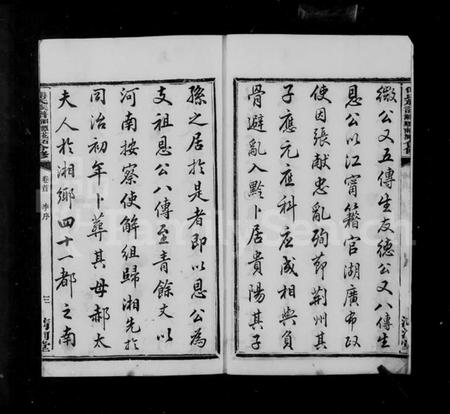 微公又五傳生友德公又八傳生
恩公以江甯籍官湖廣布政
使因張獻忠亂殉節荆州其
子應元應科应成相與負
骨避亂入黔卜居貴陽其子
孫之居於是者即以恩公為
支祖恩公八傳至青餘丈以
河南按察使解組歸湘先於
同治初年卜葬其母郝太
夫人於湘鄉四十一都之南
卷首 李序
三